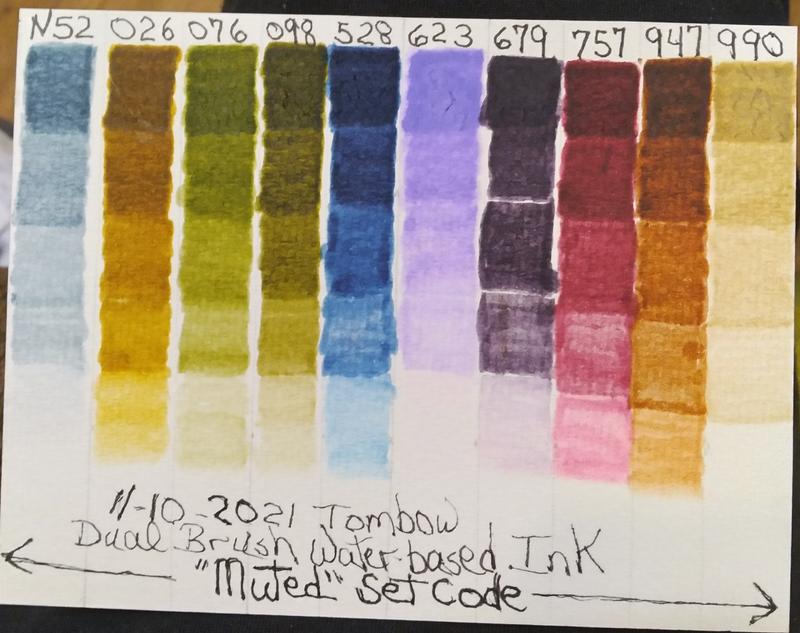 N52 026 076 098 528 623 679 757 947 990
11-10-2021 Tombow
Dual Brush Water-based Ink
"Muted" Set Code